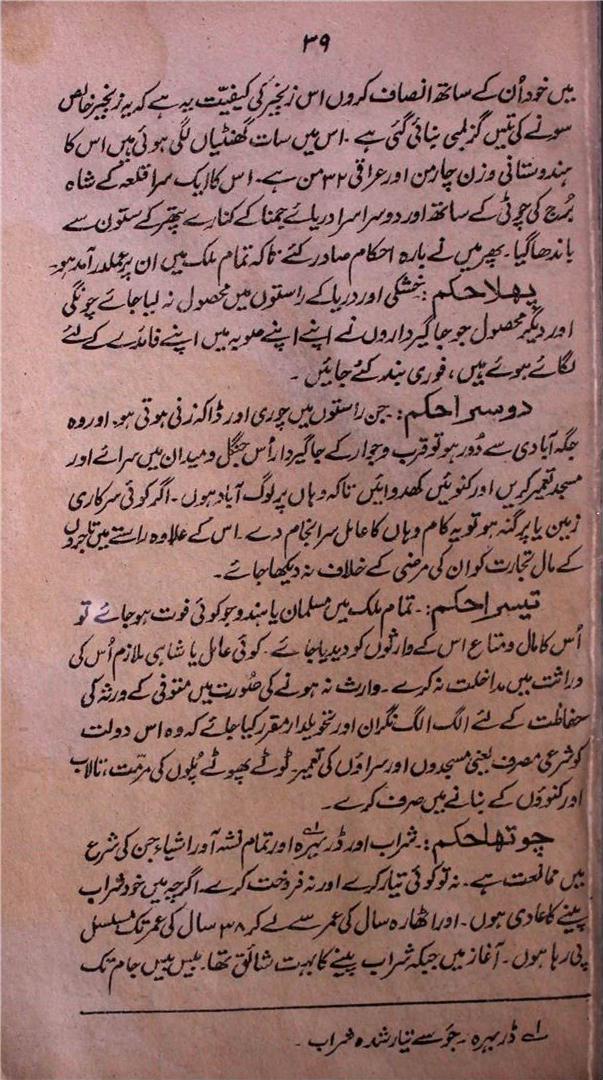 ۳۹
میں خود اُن کے ساتھ انصاف کروں اس زنجیر کی کیفیّت یہ ہے کہ یہ زنجیر خالص
سونے کی تیس گز لمبی بنائی گئی ہے۔ اس میں سات گھنٹیاں لگی ہوئی ہیں اس کا
ہندوستانی وزن چار من اور عراقی ۳۲ من ہے۔ اس کا ایک سرا قلعہ کے شاہ
بُرج کی چوٹی کے ساتھ اور دوسرا سرا دریائے جمنا کے کنارے پتھر کے ستون سے
باندھا گیا۔ پھر میں نے بارہ احکام صادر کئے تاکہ تمام ملک میں ان پر عملدرآمد ہو۔
پہلا حکم :۔ خشکی اور دریا کے راستوں میں محصول نہ لیا جائے چونگی
اور دیگر محصول جو جاگیرداروں نے اپنے اپنے صوبہ میں اپنے فائدے کے لئے
لگائے ہوئے ہیں، فوری بند کئے جائیں ۔
دوسرا حکم :۔ جن راستوں میں چوری اور ڈاکہ زنی ہوتی ہو۔ اور وہ
جگہ آبادی سے دُور ہو تو قرب و جوار کے جاگیردار اُس جنگل و میدان میں سرائے اور
مسجد تعمیر کریں اور کنوئیں کھدوائیں تاکہ وہاں پر لوگ آباد ہوں۔ اگر کوئی سرکاری
زمین یا پرگنہ ہو تو یہ کام وہاں کا عامل سرانجام دے۔ اس کے علاوہ راستے میں تاجروں
کے مال تجارت کو ان کی مرضی کے خلاف نہ دیکھا جائے۔
تیسرا حکم :۔ تمام ملک میں مسلمان یا ہندو جو کوئی فوت ہو جائے تو
اُس کا مال و متاع اس کے وارثوں کو دیدیا جائے۔ کوئی عامل یا شاہی ملازم اُس کی
وراثت میں مداخلت نہ کرے۔ وارث نہ ہونے کی صُورت میں متوفی کے ورثہ کی
حفاظت کے لئے الگ الگ نگران اور تحویلدار مقرر کیا جائے کہ وہ اس دولت
کو شرعی مصرف یعنی مسجدوں اور سراؤں کی تعمیر۔ ٹوٹے پھوٹے پُلوں کی مرمّت، تالاب
اور کنوؤں کے بنانے میں صرف کرے۔
چوتھا حکم :۔ شراب اور ڈربہرہ ۱ے اور تمام نشہ آور اشیاء جن کی شرع
میں ممانعت ہے۔ نہ تو کوئی تیار کرے اور نہ فروخت کرے۔ اگرچہ میں خود شراب
پینے کا عادی ہوں۔ اور اٹھارہ سال کی عمر سے لے کر ۳۸ سال کی عمر تک مسلسل
پی رہا ہوں۔ آغاز میں جبکہ شراب پینے کا بہت شائق تھا۔ بیس بیس جام تک
۱ے ڈربہرہ۔ جَو سے تیار شدہ شراب ۔